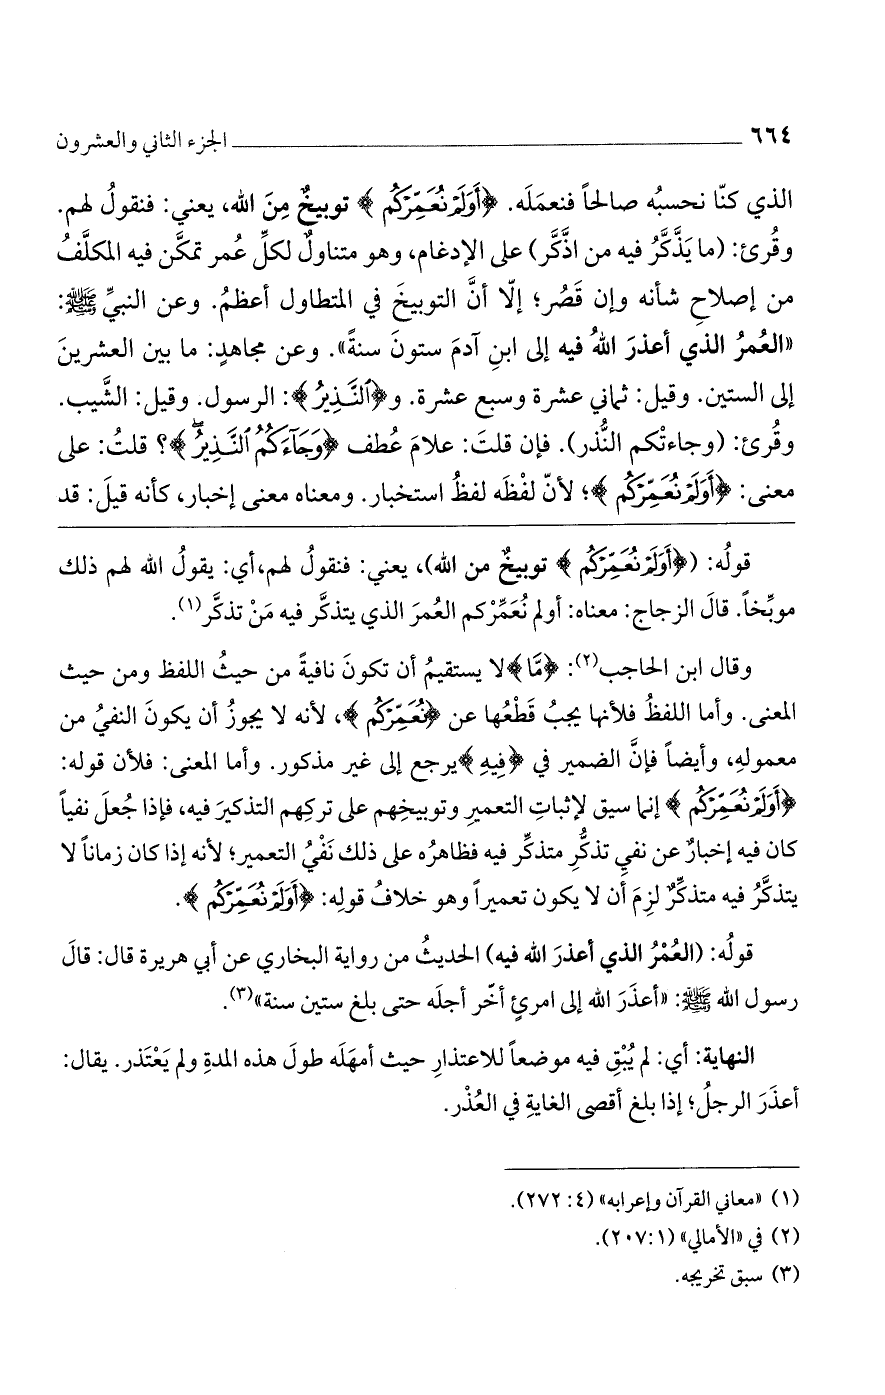 ٦٦٤ الجزء الثاني والعشرون
الذي كنّا نحسبُه صالحاً فنعمَلَه. ﴿أَوَلَمْ نُعَمِّرْكُم﴾ توبيخٌ مِنَ الله، يعني: فنقولُ لهم.
وقُرئ: (ما يَذَّكَّرُ فيه من اذَّكَّر) على الإدغام، وهو متناولٌ لكلِّ عُمر تمكَّن فيه المكلَّفُ
من إصلاحِ شأنه وإن قَصُر؛ إلّا أنَّ التوبيخَ في المتطاول أعظمُ. وعن النبيِّ ﷺ:
«العُمرُ الذي أعذرَ اللهُ فيه إلى ابنِ آدمَ ستونَ سنةً». وعن مجاهدٍ: ما بين العشرينَ
إلى الستين. وقيل: ثماني عشرة وسبع عشرة. و﴿ٱلنَّذِيرُ﴾: الرسول. وقيل: الشَّيب.
وقُرئ: (وجاءتْكم النُّذر). فإن قلتَ: علامَ عُطف ﴿وَجَآءَكُمُ ٱلنَّذِيرُ﴾؟ قلتُ: على
معنى: ﴿أَوَلَمْ نُعَمِّرْكُم﴾؛ لأنّ لفْظَه لفظُ استخبار. ومعناه معنى إخبار، كأنه قيلَ: قد
قولُه: (﴿أَوَلَمْ نُعَمِّرْكُم﴾ توبيخٌ من الله)، يعني: فنقولُ لهم،أي: يقولُ الله لهم ذلك
موبِّخاً. قالَ الزجاج: معناه: أولم نُعَمِّرْكم العُمرَ الذي يتذكَّر فيه مَنْ تذكَّر(١).
وقال ابن الحاجب(٢): ﴿مَّا﴾لا يستقيمُ أن تكونَ نافيةً من حيثُ اللفظ ومن حيث
المعنى. وأما اللفظُ فلأنها يجبُ قَطْعُها عن ﴿نُعَمِّرْكُم﴾، لأنه لا يجوزُ أن يكونَ النفيُ من
معمولهِ، وأيضاً فإنَّ الضمير في ﴿فِيهِ﴾يرجع إلى غير مذكور. وأما المعنى: فلأن قوله:
﴿أَوَلَمْ نُعَمِّرْكُم﴾ إنما سيق لإثباتِ التعميرِ وتوبيخِهم على تركِهم التذكيرَ فيه، فإذا جُعلَ نفياً
كان فيه إخبارٌ عن نفيِ تذكُّرِ متذكِّر فيه فظاهرُه على ذلك نَفْيُ التعمير؛ لأنه إذا كان زماناً لا
يتذكَّرُ فيه متذكِّرٌ لزِمَ أن لا يكون تعميراً وهو خلافُ قولِه: ﴿أَوَلَمْ نُعَمِّرْكُم﴾.
قولُه: (العُمْرُ الذي أعذرَ الله فيه) الحديثُ من رواية البخاري عن أبي هريرة قال: قالَ
رسول الله ﷺ: «أعذَرَ الله إلى امرئٍ أخّر أجلَه حتى بلغ ستين سنة»(٣).
النهاية: أي: لم يُبْقِ فيه موضعاً للاعتذارِ حيث أمهَلَه طولَ هذه المدةِ ولم يَعْتَذر. يقال:
أعذَرَ الرجلُ؛ إذا بلغ أقصى الغايةِ في العُذْر.
(١) «معاني القرآن وإعرابه» (٤: ٢٧٢).
(٢) في «الأمالي» (١:‏٢٠٧).
(٣) سبق تخريجه.